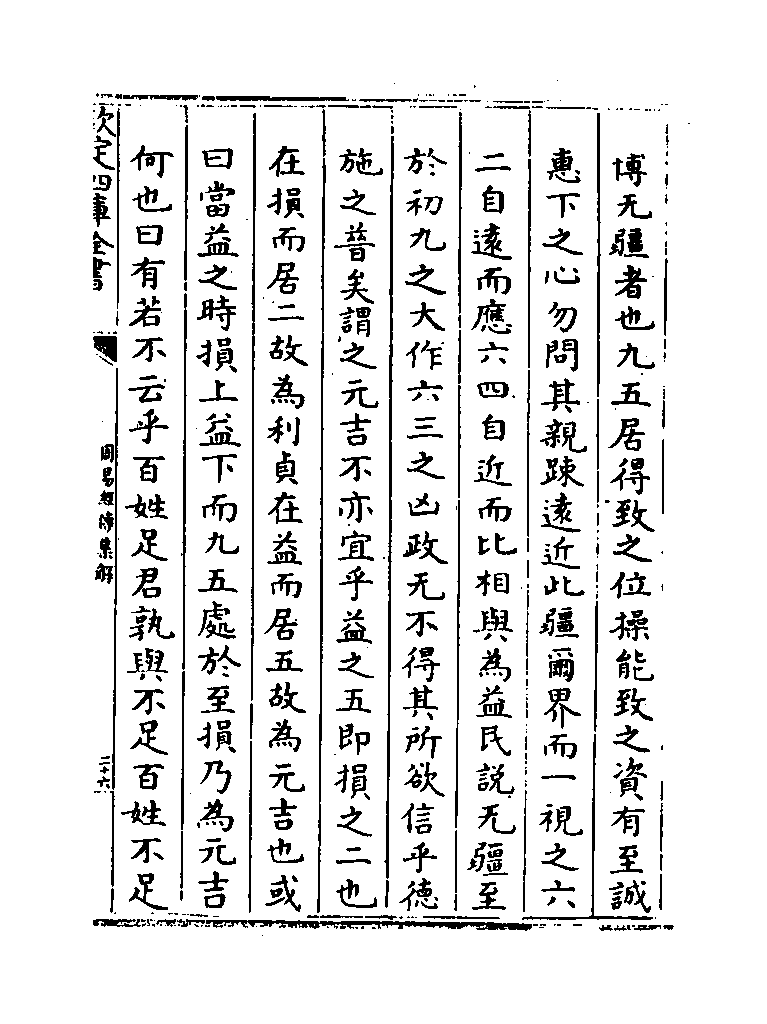 博无疆者也九五居得致之位操能致之資有至誠
惠下之心勿問其親踈遠近此疆爾界而一視之六
二自遠而應六四自近而比相與為益民說无疆至
於初九之大作六三之凶政无不得其所欲信乎德
施之普矣謂之元吉不亦宜乎益之五即損之二也
在損而居二故為利貞在益而居五故為元吉也或
曰當益之時損上益下而九五處於至損乃為元吉
何也曰有若不云乎百姓足君孰與不足百姓不足
欽定四庫全書
周易經傳集解
二十六